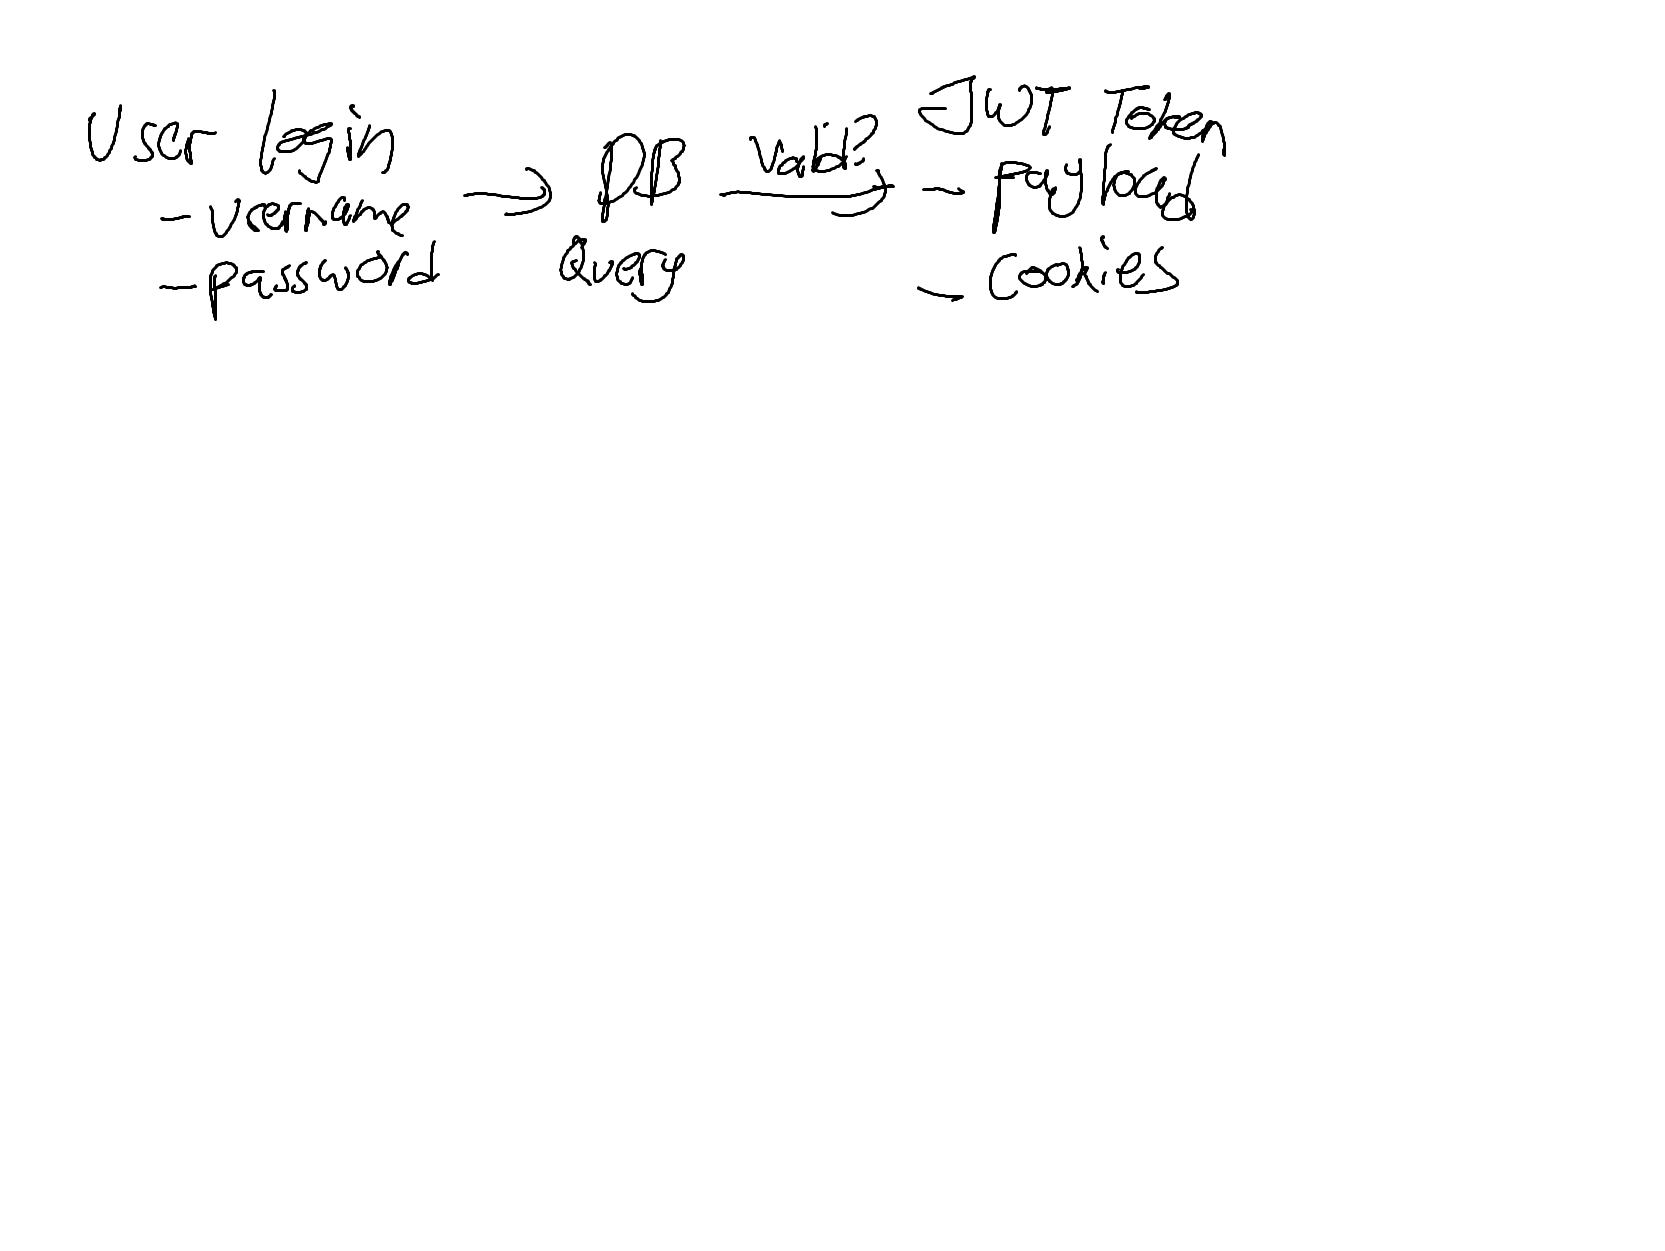 User login
- username
- password
→
DB
Query
Valid?
JWT Token
- payload
- Cookies